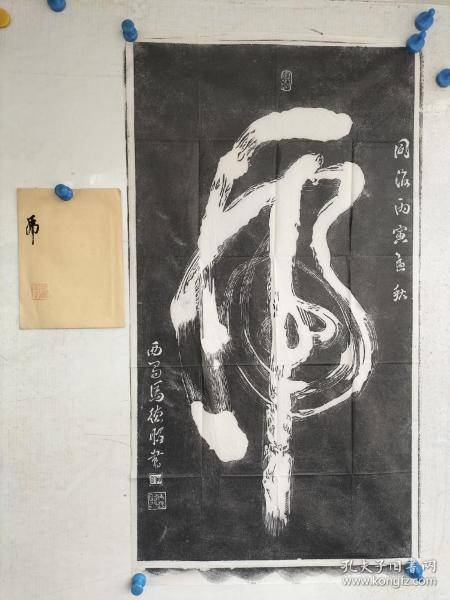 虎
同治丙寅孟秋
西蜀馬德昭書
虎
孔夫子旧书网
www.kongfz.com